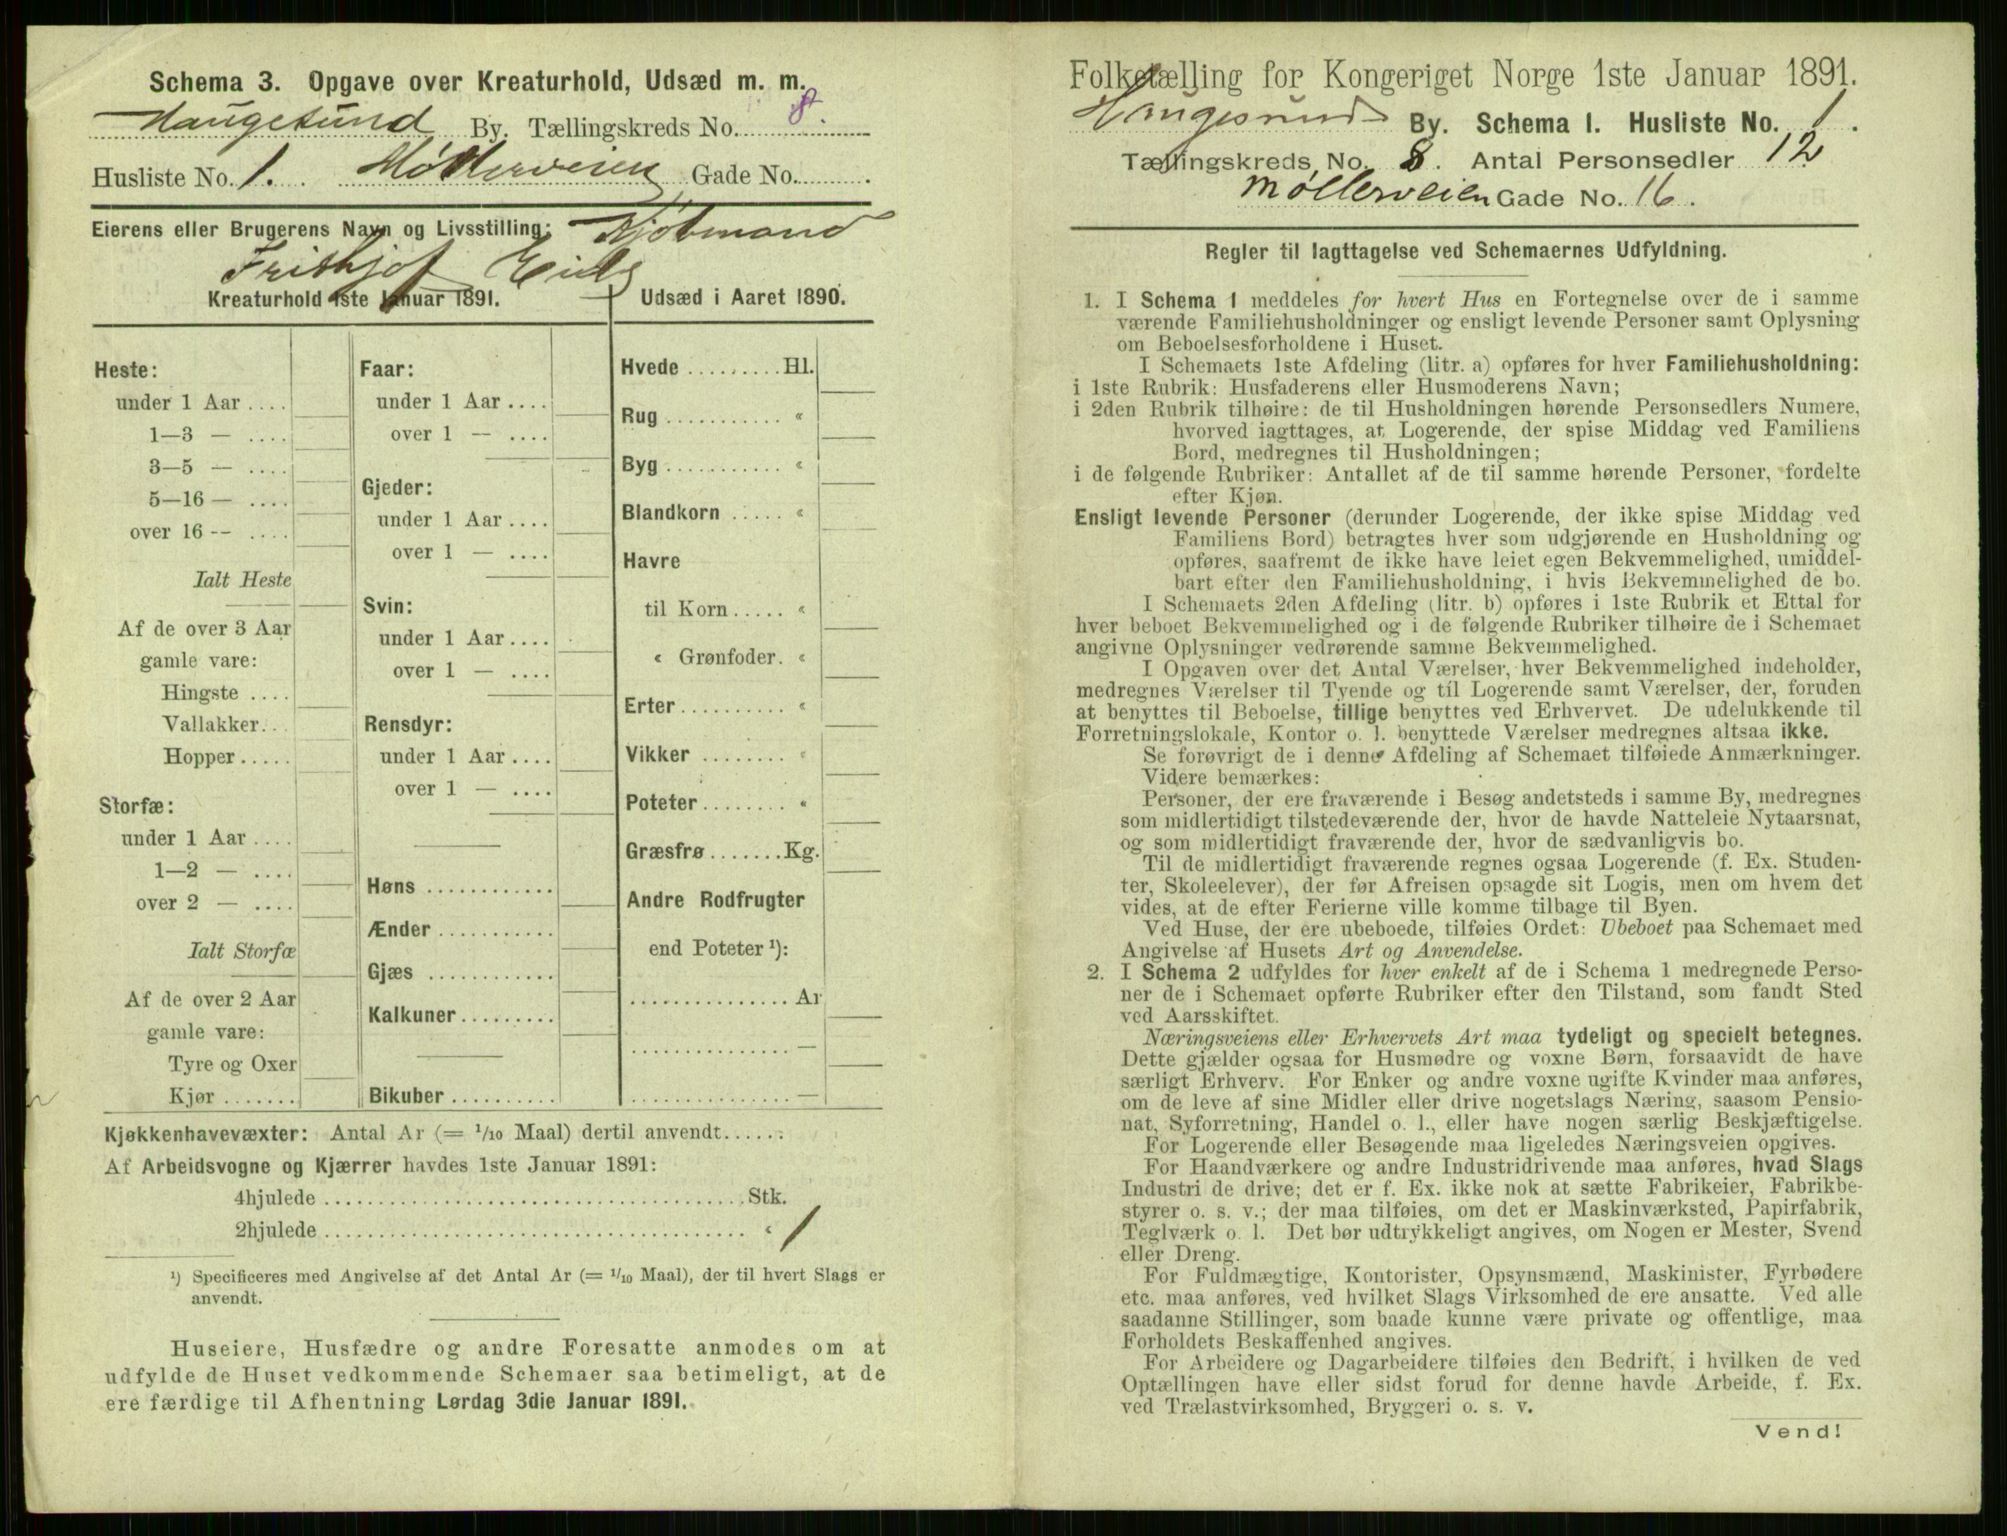 Schema 3. Opgave over Kreaturhold, Udsæd m. m.
Haugesund By. Tællingskreds No. 8.
Husliste No. 1. Møllerveien Gade No.
Eierens eller Brugerens Navn og Livsstilling: Kjøbmand
Frithjof Eide
Kreaturhold 1ste Januar 1891.
Heste:
under 1 Aar ....
1—3 — ....
3—5 — ....
5—16 — ....
over 16 -- ....
Ialt Heste
Af de over 3 Aar
gamle vare:
Hingste ....
Vallakker...
Hopper.....
Storfæ:
under 1 Aar ....
1—2 — ....
over 2 — ....
Ialt Storfæ
Af de over 2 Aar
gamle vare:
Tyre og Oxer
Kjør .......
Faar:
under 1 Aar ....
over 1 — ....
Gjeder:
under 1 Aar ....
over 1 — ....
Svin:
under 1 Aar ....
over 1 — ....
Rensdyr:
under 1 Aar ....
over 1 — ....
Høns ............
Ænder ...........
Gjæs ............
Kalkuner.........
Bikuber ..........
Udsæd i Aaret 1890.
Hvede ......... Hl.
Rug ........... «
Byg ........... «
Blandkorn ..... «
Havre
til Korn ..... «
« Grønfoder. «
Erter .......... «
Vikker ........ «
Poteter ........ «
Græsfrø ....... Kg.
Andre Rodfrugter
end Poteter ¹):
............... Ar
............... —
............... —
Kjøkkenhavevæxter: Antal Ar (= 1/10 Maal) dertil anvendt......
Af Arbeidsvogne og Kjærrer havdes 1ste Januar 1891:
4hjulede ........................................ Stk.
2hjulede ........................................ « 1
¹) Specificeres med Angivelse af det Antal Ar (= 1/10 Maal), der til hvert Slags er
anvendt.
Huseiere, Husfædre og andre Foresatte anmodes om at
udfylde de Huset vedkommende Schemaer saa betimeligt, at de
ere færdige til Afhentning Lørdag 3die Januar 1891.
Folketælling for Kongeriget Norge 1ste Januar 1891.
Haugesund By. Schema 1. Husliste No. 1.
Tællingskreds No. 8. Antal Personsedler 12
Møllerveien Gade No. 16.
Regler til Iagttagelse ved Schemaernes Udfyldning.
1. I Schema 1 meddeles for hvert Hus en Fortegnelse over de i samme
værende Familiehusholdninger og ensligt levende Personer samt Oplysning
om Beboelsesforholdene i Huset.
I Schemaets 1ste Afdeling (litr. a) opføres for hver Familiehusholdning:
i 1ste Rubrik: Husfaderens eller Husmoderens Navn;
i 2den Rubrik tilhøire: de til Husholdningen hørende Personsedlers Numere,
hvorved iagttages, at Logerende, der spise Middag ved Familiens
Bord, medregnes til Husholdningen;
i de følgende Rubriker: Antallet af de til samme hørende Personer, fordelte
efter Kjøn.
Ensligt levende Personer (derunder Logerende, der ikke spise Middag ved
Familiens Bord) betragtes hver som udgjørende en Husholdning og
opføres, saafremt de ikke have leiet egen Bekvemmelighed, umiddel-
bart efter den Familiehusholdning, i hvis Bekvemmelighed de bo.
I Schemaets 2den Afdeling (litr. b) opføres i 1ste Rubrik et Ettal for
hver beboet Bekvemmelighed og i de følgende Rubriker tilhøire de i Schemaet
angivne Oplysninger vedrørende samme Bekvemmelighed.
I Opgaven over det Antal Værelser, hver Bekvemmelighed indeholder,
medregnes Værelser til Tyende og til Logerende samt Værelser, der, foruden
at benyttes til Beboelse, tillige benyttes ved Erhvervet. De udelukkende til
Forretningslokale, Kontor o. l. benyttede Værelser medregnes altsaa ikke.
Se forøvrigt de i denne Afdeling af Schemaet tilføiede Anmærkninger.
Videre bemærkes:
Personer, der ere fraværende i Besøg andetsteds i samme By, medregnes
som midlertidigt tilstedeværende der, hvor de havde Natteleie Nytaarsnat,
og som midlertidigt fraværende der, hvor de sædvanligvis bo.
Til de midlertidigt fraværende regnes ogsaa Logerende (f. Ex. Studen-
ter, Skoleelever), der før Afreisen opsagde sit Logis, men om hvem det
vides, at de efter Ferierne ville komme tilbage til Byen.
Ved Huse, der ere ubeboede, tilføies Ordet: Ubeboet paa Schemaet med
Angivelse af Husets Art og Anvendelse.
2. I Schema 2 udfyldes for hver enkelt af de i Schema 1 medregnede Perso-
ner de i Schemaet opførte Rubriker efter den Tilstand, som fandt Sted
ved Aarsskiftet.
Næringsveiens eller Erhvervets Art maa tydeligt og specielt betegnes.
Dette gjælder ogsaa for Husmødre og voxne Børn, forsaavidt de have
særligt Erhverv. For Enker og andre voxne ugifte Kvinder maa anføres,
om de leve af sine Midler eller drive nogetslags Næring, saasom Pensio-
nat, Syforretning, Handel o. l., eller have nogen særlig Beskjæftigelse.
For Logerende eller Besøgende maa ligeledes Næringsveien opgives.
For Haandværkere og andre Industridrivende maa anføres, hvad Slags
Industri de drive; det er f. Ex. ikke nok at sætte Fabrikeier, Fabrikbe-
styrer o. s. v.; der maa tilføies, om det er Maskinværksted, Papirfabrik,
Teglværk o. l. Det bør udtrykkeligt angives, om Nogen er Mester, Svend
eller Dreng.
For Fuldmægtige, Kontorister, Opsynsmænd, Maskinister, Fyrbødere
etc. maa anføres, ved hvilket Slags Virksomhed de ere ansatte. Ved alle
saadanne Stillinger, som baade kunne være private og offentlige, maa
Forholdets Beskaffenhed angives.
For Arbeidere og Dagarbeidere tilføies den Bedrift, i hvilken de ved
Optællingen have eller sidst forud for denne havde Arbeide, f. Ex.
ved Trælastvirksomhed, Bryggeri o. s. v.
Vend!